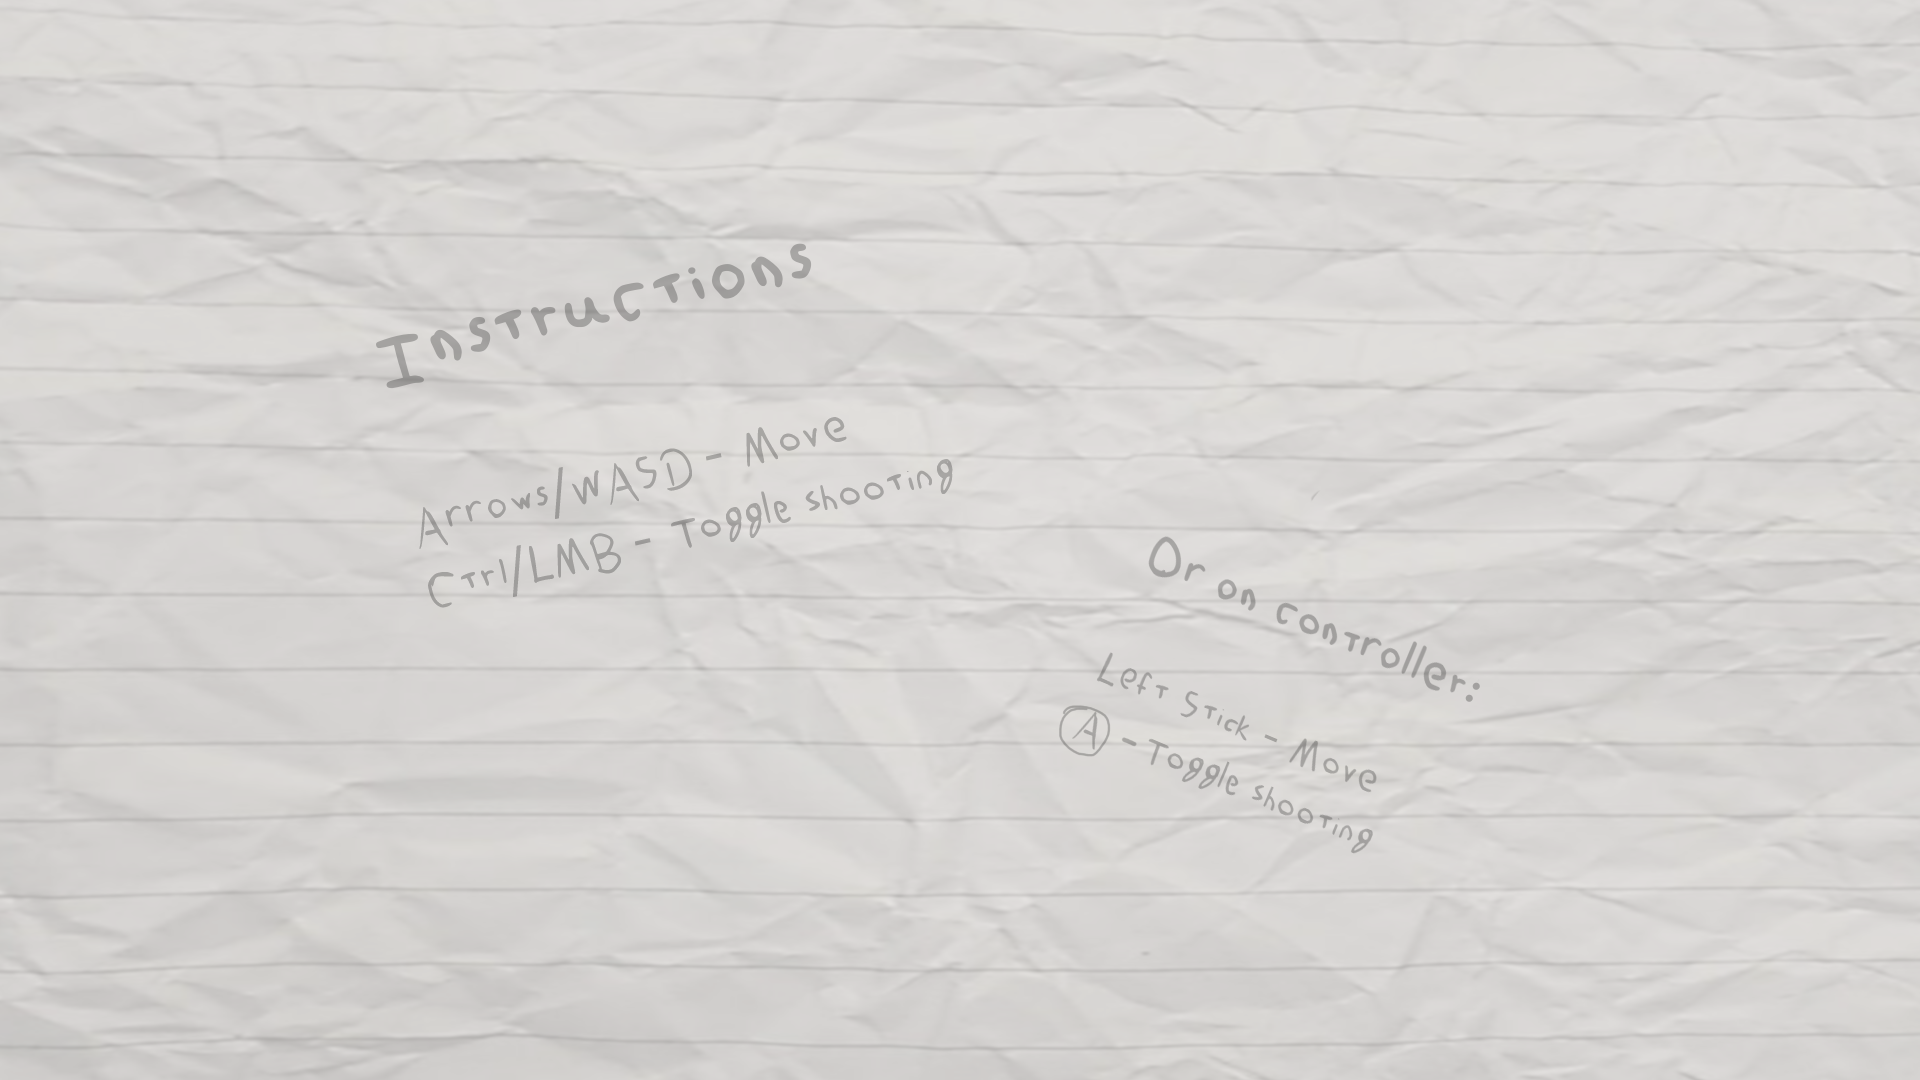 Instructions
Arrows/WASD - Move
Ctrl/LMB - Toggle shooting
Or on controller:
Left Stick - Move
A - Toggle shooting